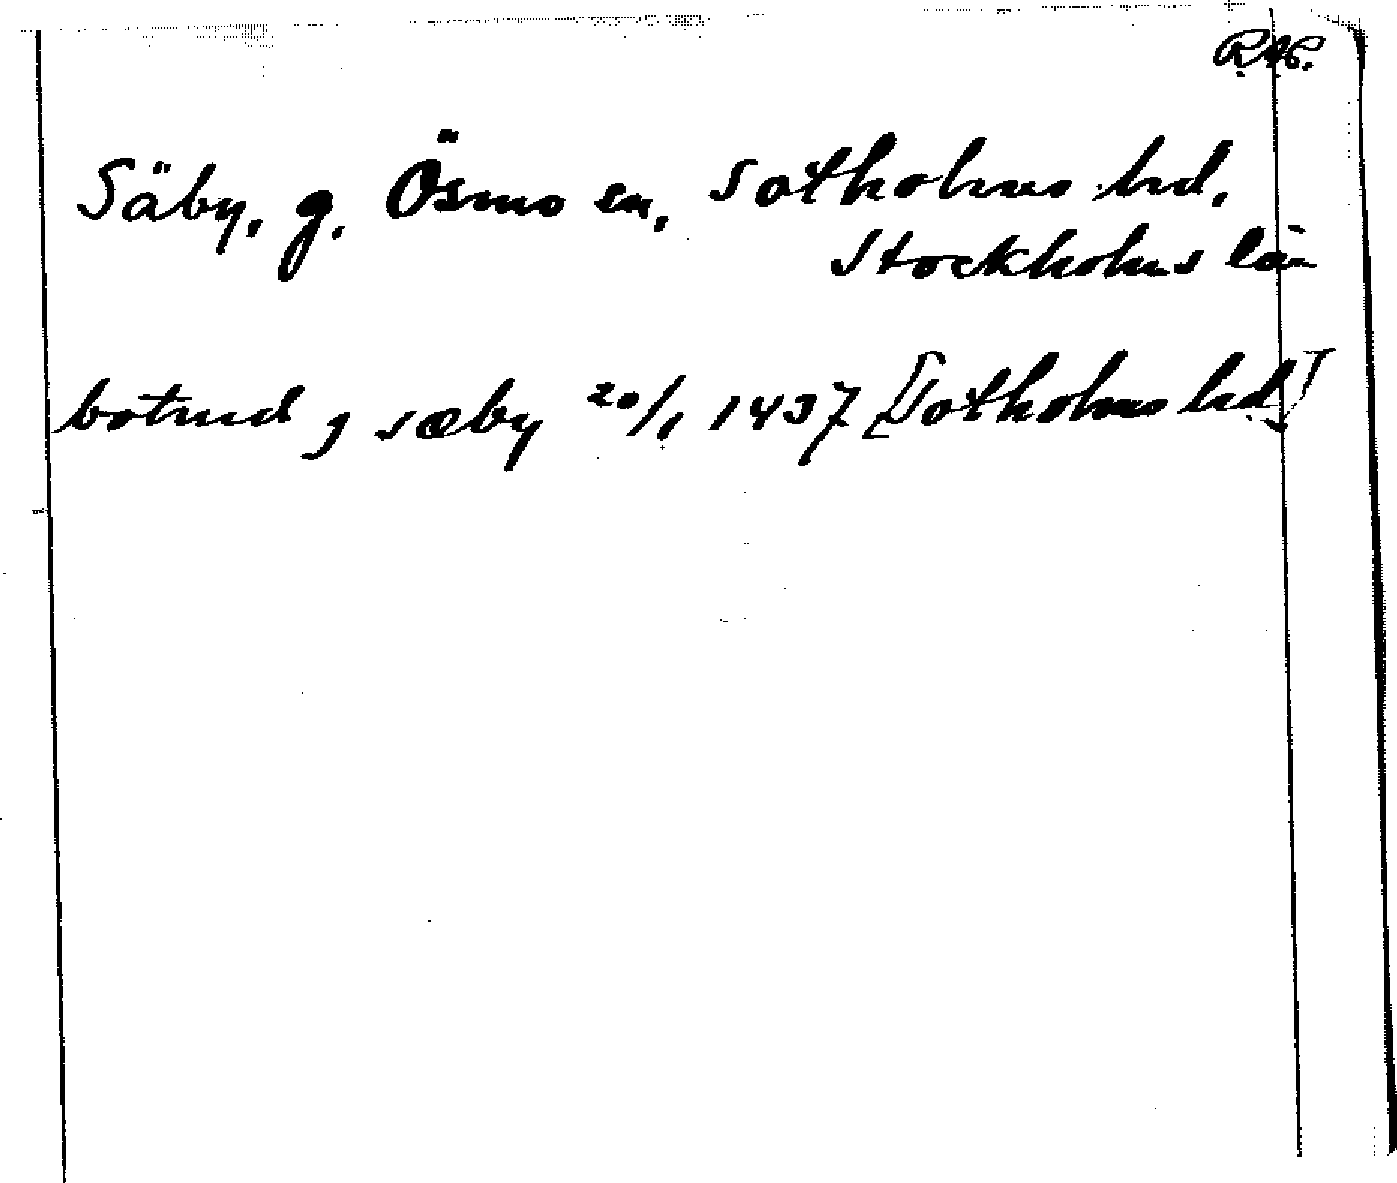 RAP.
Säby, g. Ösmo sn, Sotholms hd,
Stockholms län
botuid j sæby 20/1 1437 [Sotholms hd]